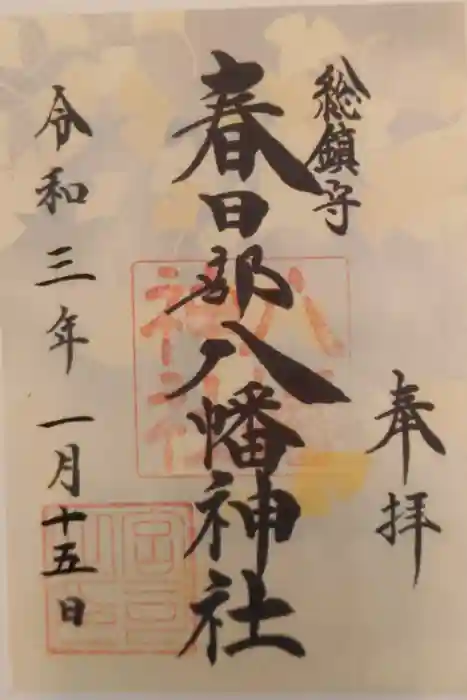 奉拝
総鎮守
春日部八幡神社
令和三年一月十五日